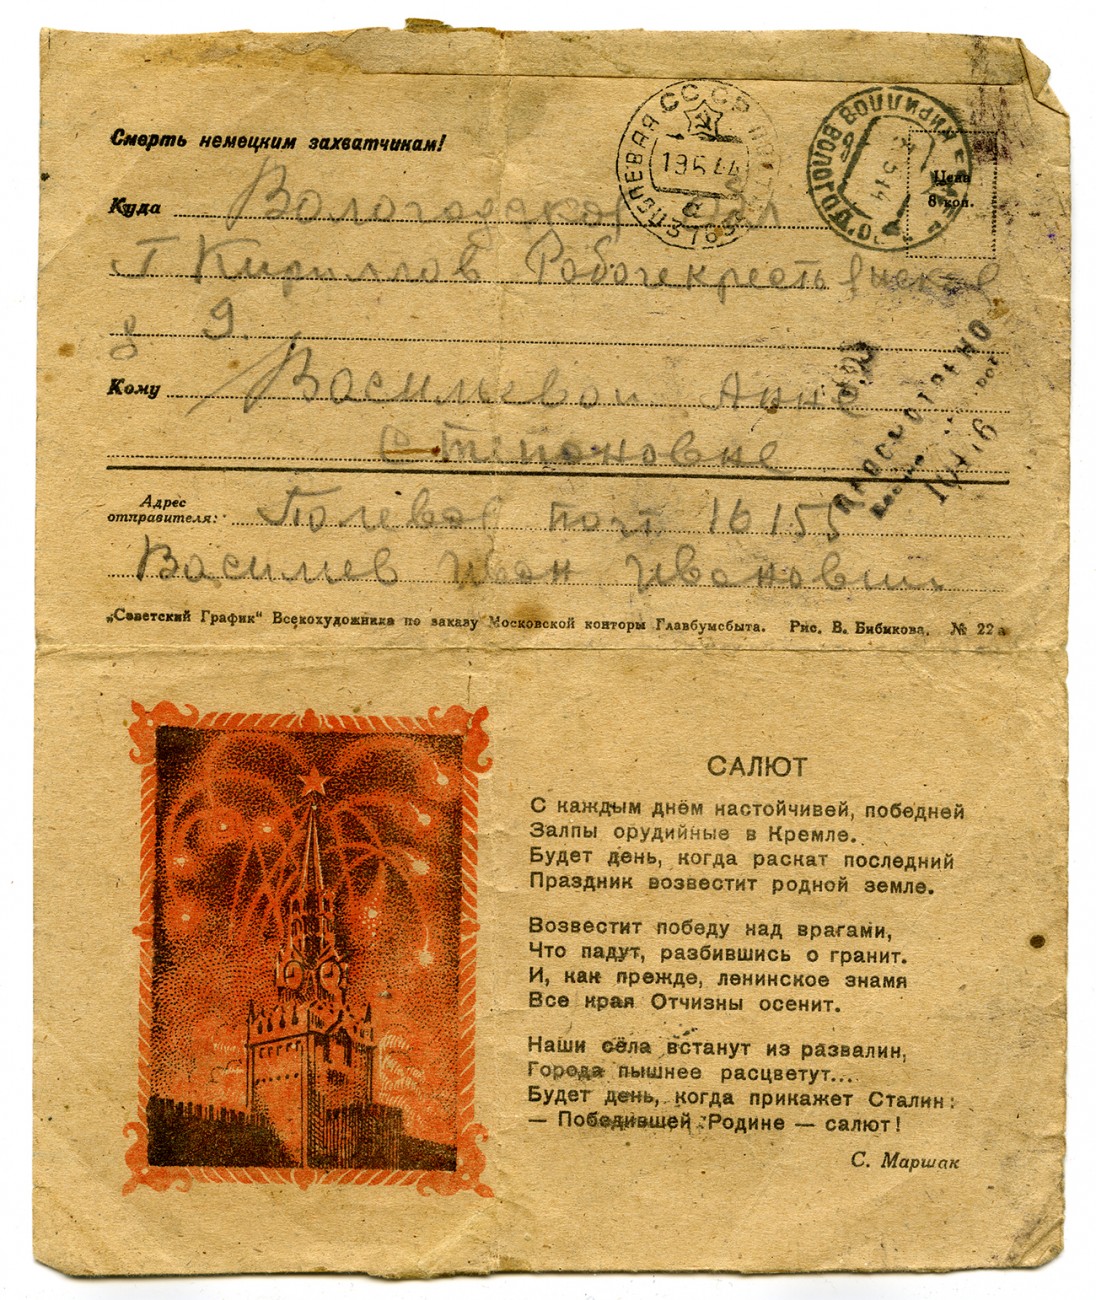 Смерть немецким захватчикам!
СССР ПОЛЕВАЯ ПОЧТА
19 5 44
а
КИРИЛЛОВ ВОЛОГОД.
Цена
8 коп.
Куда Вологодская обл
г Кириллов Рабочекрестьянская
д 9.
Кому Васильевой Анне
Степановне
ПРОСМОТРЕНО
Адрес
отправителя: Полевая почт 16155
Василев Иван Иванович
„Советский График“ Всекохудожника по заказу Московской конторы Главбумсбыта. Рис. В. Бибикова. № 22а
САЛЮТ
С каждым днём настойчивей, победней
Залпы орудийные в Кремле.
Будет день, когда раскат последний
Праздник возвестит родной земле.
Возвестит победу над врагами,
Что падут, разбившись о гранит.
И, как прежде, ленинское знамя
Все края Отчизны осенит.
Наши сёла встанут из развалин,
Города пышнее расцветут...
Будет день, когда прикажет Сталин:
— Победившей Родине — салют!
С. Маршак